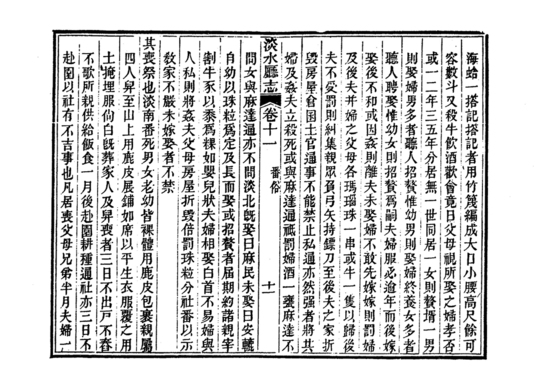 海蛤一搭記搭記者用竹篾編成大口小腰高尺餘可
容數斗又殺牛飲酒歡會竟日父母視所娶之婦孝否
或一二年三五年分居無一世同居一女則贅壻一男
則娶婦男多者聽人招贅惟幼男則娶婦終養女多者
聽人聘娶惟幼女則招贅爲嗣夫婦服必逾年而後嫁
娶後不和或因姦則離夫未娶婦不敢先嫁嫁則罰婦
及後夫并婦之父母各瑪瑙珠一串或牛一隻以歸後
夫不受罰則糾集親眾負弓矢持鏢刀至後夫之家折
毀房屋倉囷土官通事不能禁止私通亦然强者將其
婦及姦夫立殺死或與麻達通祇罰婦酒一甕麻達不
淡水廳志
卷十一
番俗
十一
問女與麻達通亦不問淡北旣娶曰麻民未娶曰安轆
自幼以珠粒爲定及長而娶或招贅者屆期約諸親宰
割牛豕以黍爲粿如嬰兒狀夫婦相娶白首不易婦與
人私則將姦夫父母房屋折毀倍罰珠粒分社番以示
敎家不嚴未嫁娶者不禁
其喪祭也淡南番死男女老幼皆裸體用鹿皮包裹親屬
四人舁至山上用鹿皮展鋪如席以平生衣服覆之用
土掩埋服尙白旣葬家人及舁喪者三日不出戶不舂
不歌所親供給飯食一月後赴園耕種通社亦三日不
赴園以社有不吉事也凡居喪父母兄弟半月夫婦一